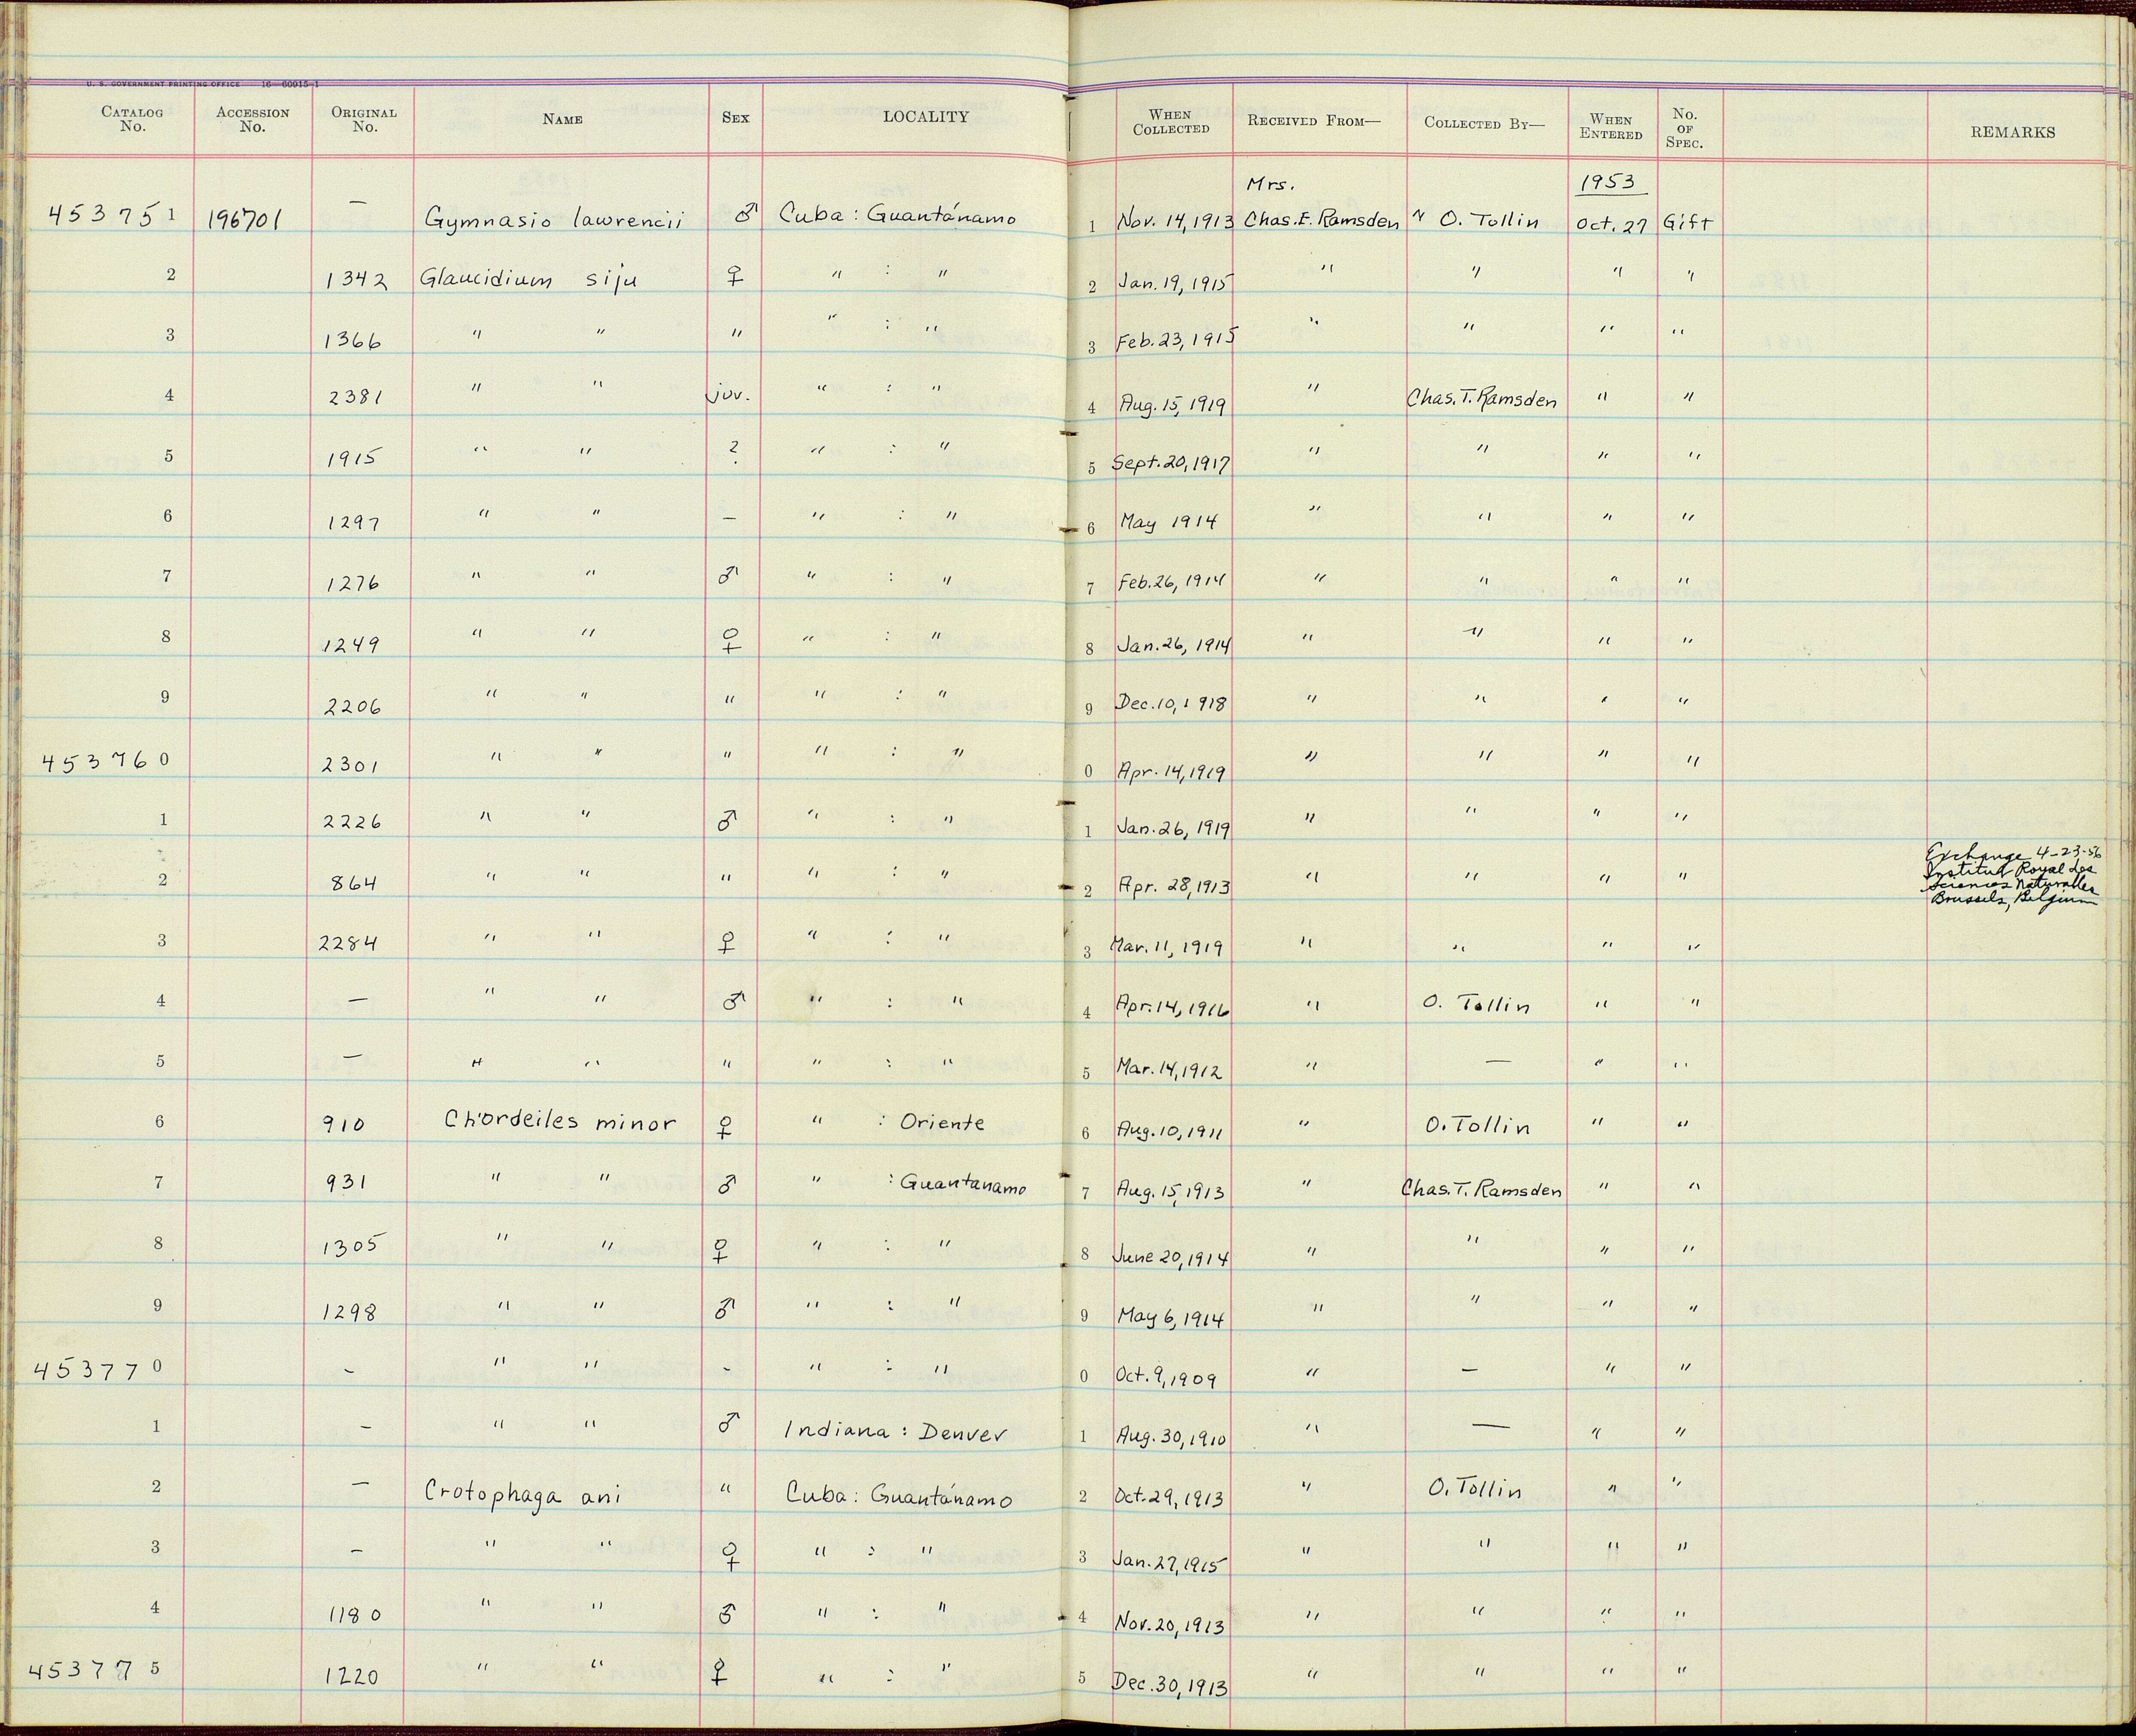 U. S. GOVERNMENT PRINTING OFFICE 16—60915-1
CATALOG No. ACCESSION No. ORIGINAL No. NAME SEX LOCALITY WHEN COLLECTED RECEIVED FROM— COLLECTED BY— WHEN ENTERED No. OF SPEC. REMARKS
Mrs. 1953
453751 196701 — Gymnasio lawrencii ♂ Cuba : Guantánamo 1 Nov. 14, 1913 Chas. E. Ramsden " O. Tollin Oct. 27 Gift
2 1342 Glaucidium siju ♀ " : " 2 Jan. 19, 1915 " " " "
3 1366 " " " " : " 3 Feb. 23, 1915 " " " "
4 2381 " " juv. " : " 4 Aug. 15, 1919 " Chas. T. Ramsden " "
5 1915 " " ? " : " 5 Sept. 20, 1917 " " " "
6 1297 " " — " : " 6 May 1914 " " " "
7 1276 " " ♂ " : " 7 Feb. 26, 1914 " " " "
8 1249 " " ♀ " : " 8 Jan. 26, 1914 " " " "
9 2206 " " " " : " 9 Dec. 10, 1918 " " " "
453760 2301 " " " " : " 0 Apr. 14, 1919 " " " "
1 2226 " " ♂ " : " 1 Jan. 26, 1919 " " " "
2 864 " " " " : " 2 Apr. 28, 1913 " " " " Exchange 4-23-56
Institut Royal des
Sciences Naturalles
Brussels, Belgium
3 2284 " " ♀ " : " 3 Mar. 11, 1919 " " " "
4 — " " ♂ " : " 4 Apr. 14, 1916 " O. Tollin " "
5 — " " " " : " 5 Mar. 14, 1912 " — " "
6 910 Chordeiles minor ♀ " : Oriente 6 Aug. 10, 1911 " O. Tollin " "
7 931 " " ♂ " : Guantanamo 7 Aug. 15, 1913 " Chas. T. Ramsden " "
8 1305 " " ♀ " : " 8 June 20, 1914 " " " "
9 1298 " " ♂ " : " 9 May 6, 1914 " " " "
453770 - " " - " : " 0 Oct. 9, 1909 " — " "
1 - " " ♂ Indiana : Denver 1 Aug. 30, 1910 " — " "
2 — Crotophaga ani " Cuba : Guantánamo 2 Oct. 29, 1913 " O. Tollin " "
3 - " " ♀ " : " 3 Jan. 27, 1915 " " " "
4 1180 " " ♂ " : " 4 Nov. 20, 1913 " " " "
453775 1220 " " ♀ " : " 5 Dec. 30, 1913 " " " "